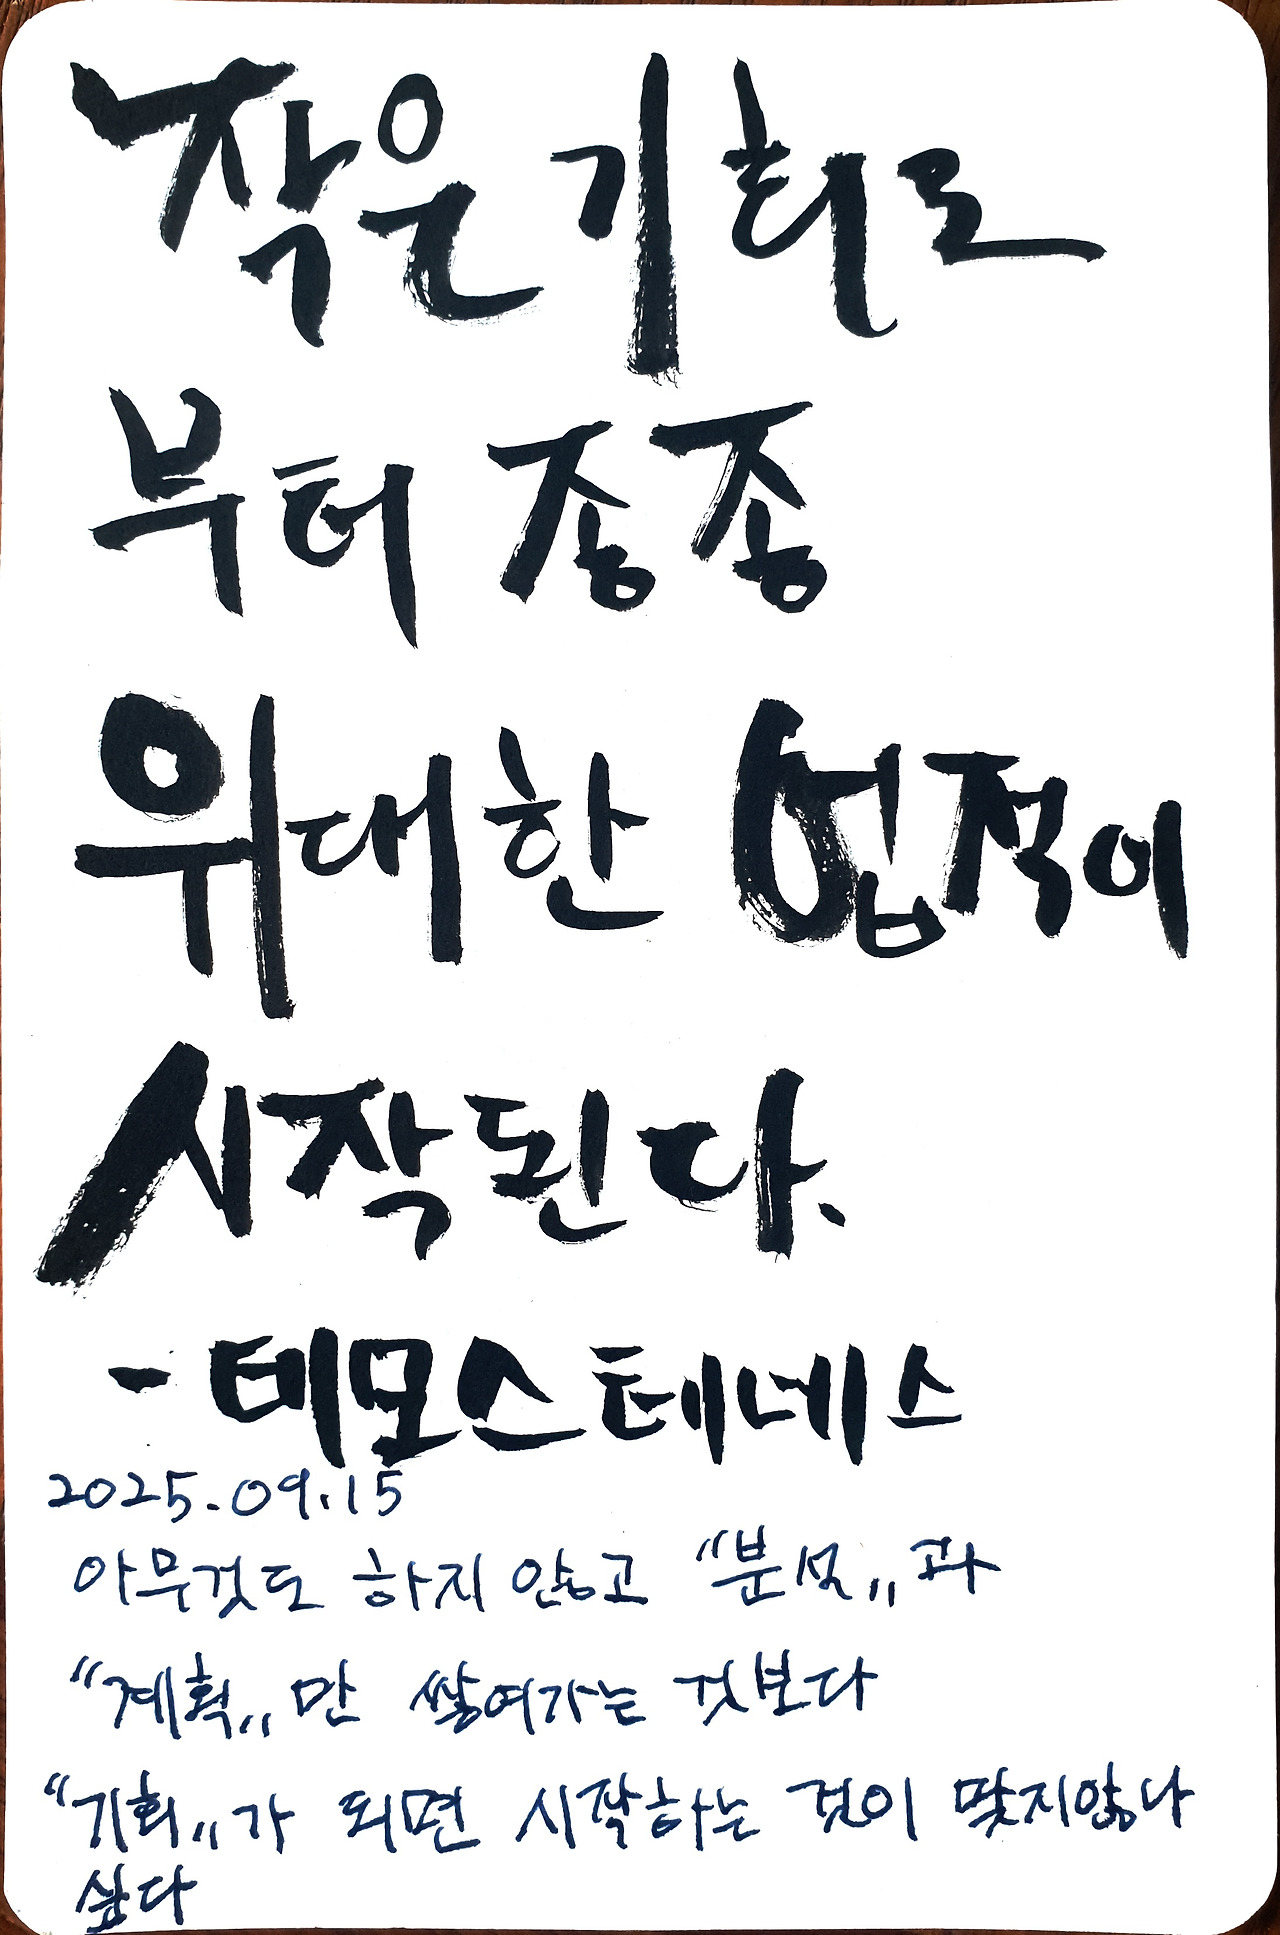 작은 기회로
부터 종종
위대한 업적이
시작된다.
- 테모스테네스
2025.09.15
아무것도 하지 않고 "분석"과
"계획"만 쌓여가는 것보다
"기회"가 되면 시작하는 것이 맞지않나
싶다